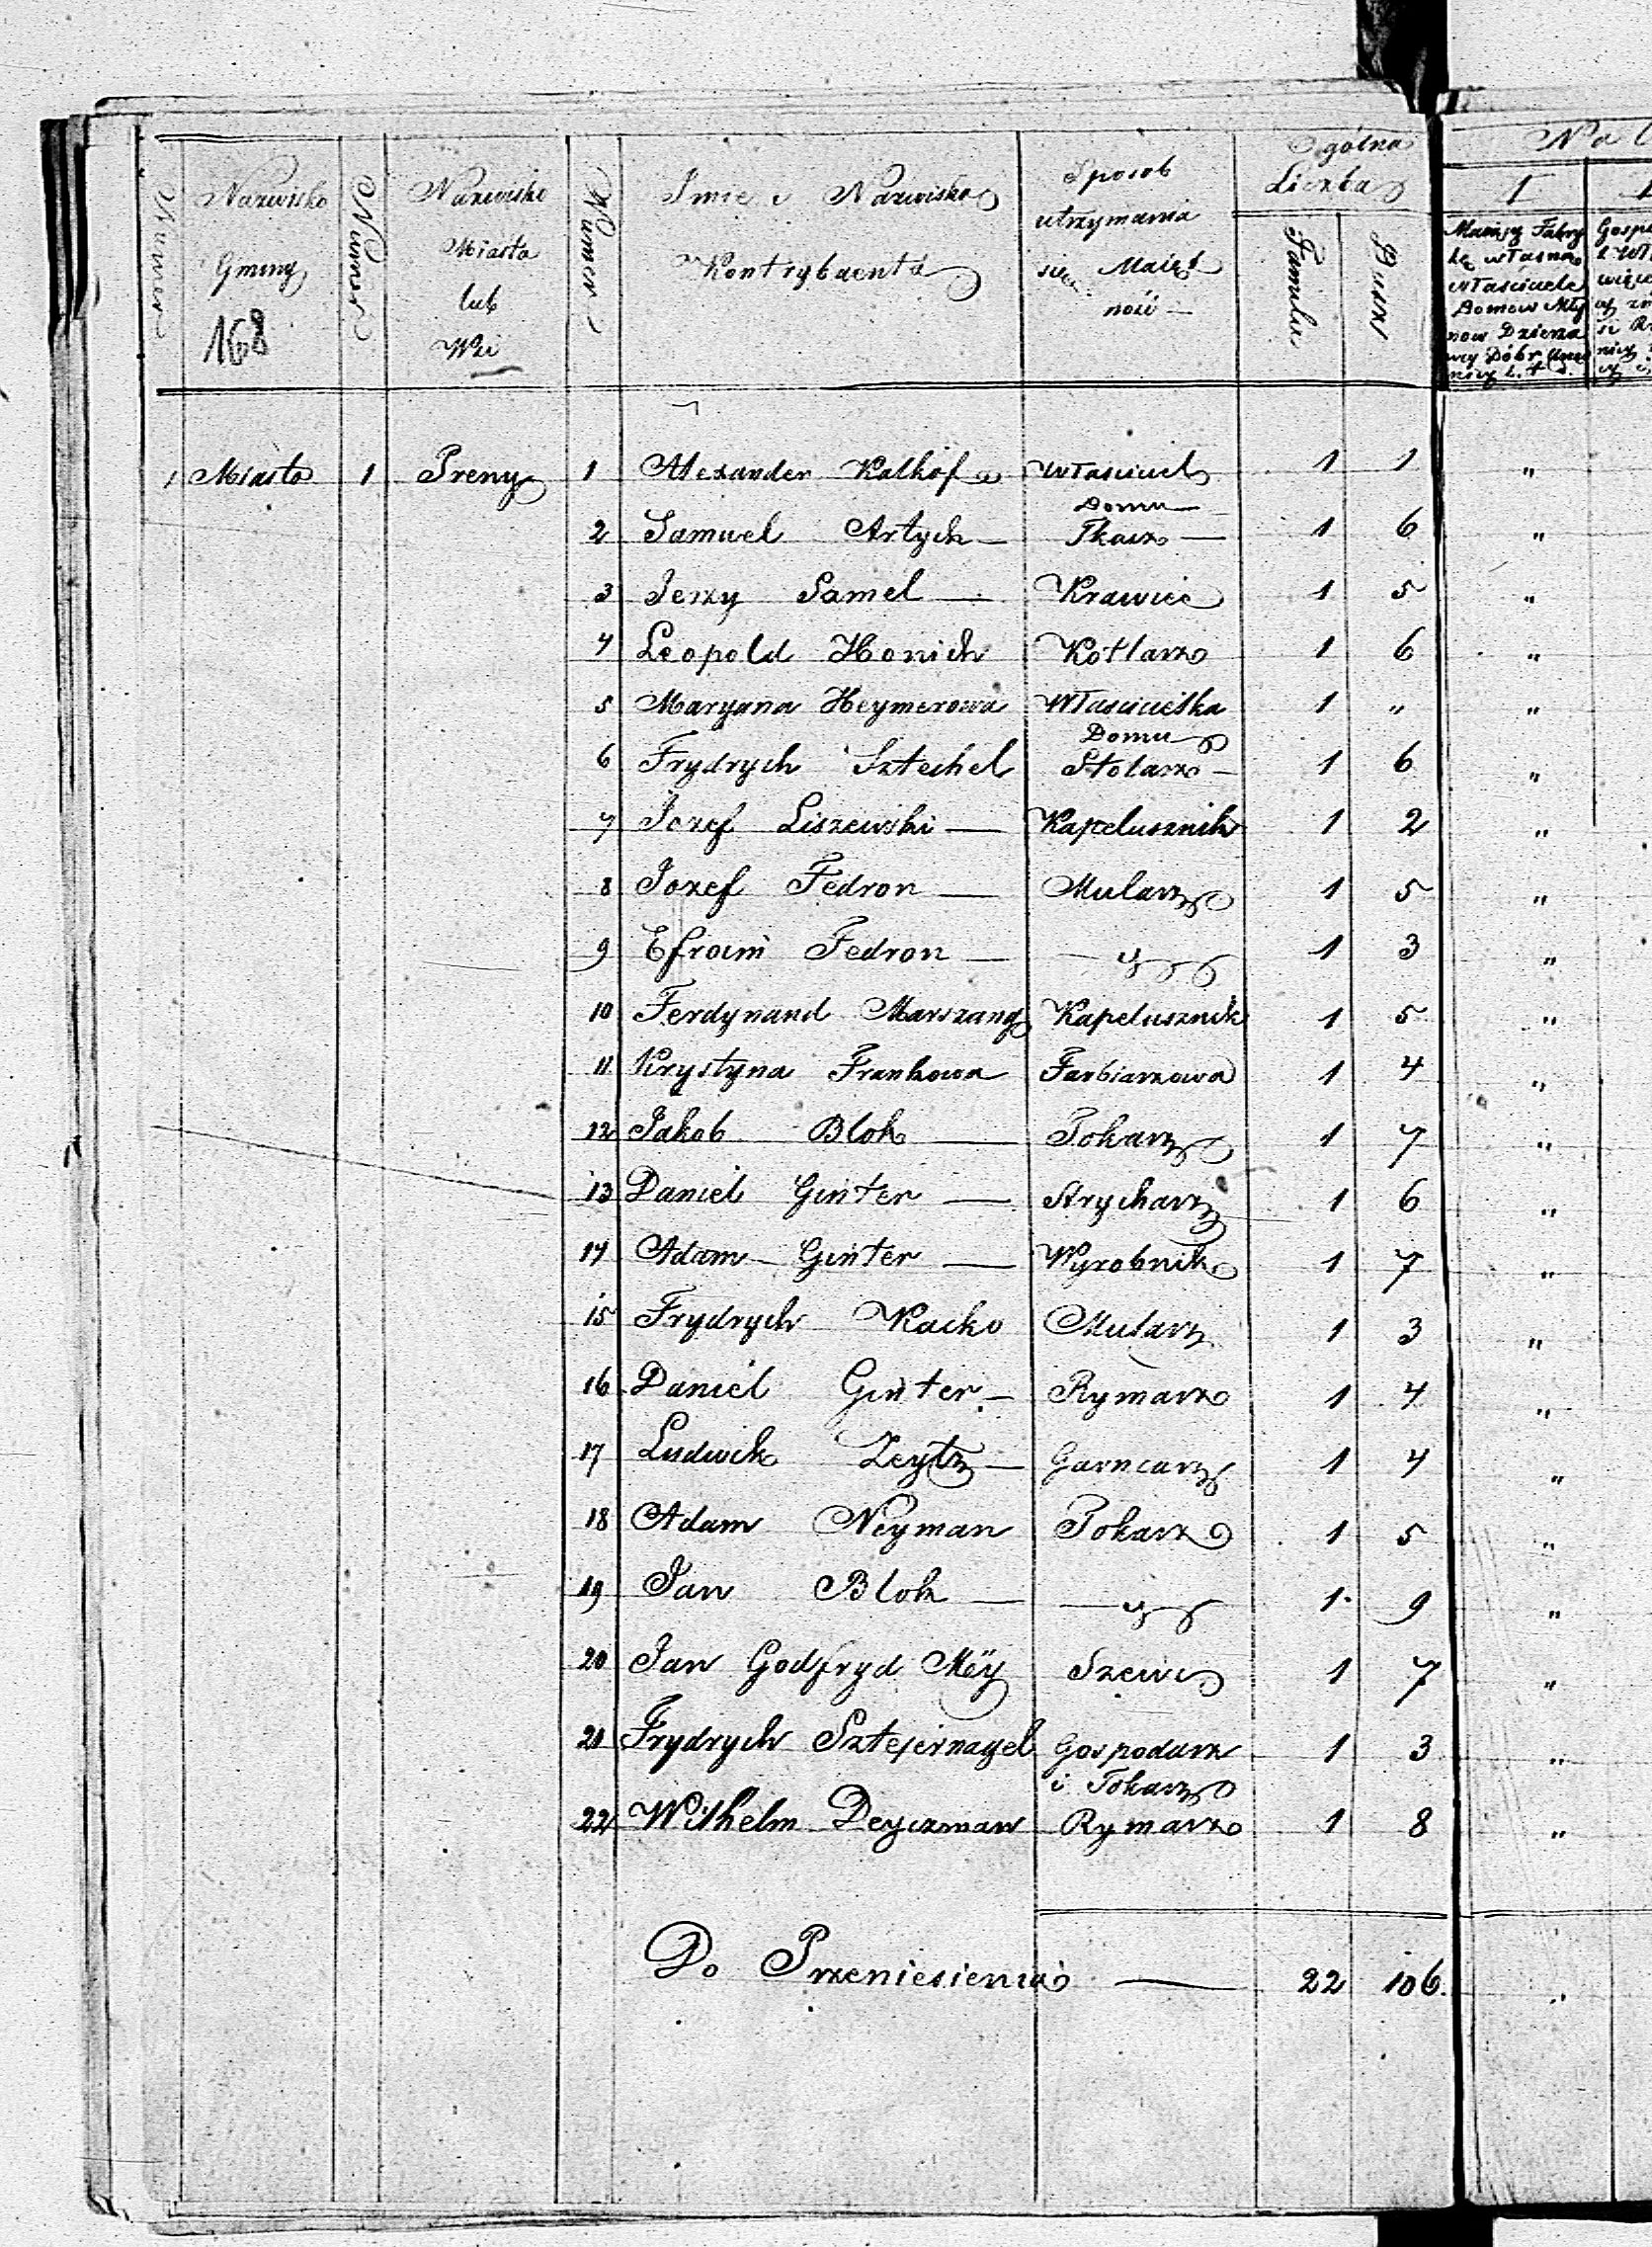 Numer Nazwisko Gminy Numer Nazwisko Miasta lub Wsi Numer Imie i Nazwisko Kontrybuenta Sposob utrzymania się Maięt ność Ogólna Liczba Familii Dusz
168
Na
I
Maiący Fabry
kę własną
właściciele
Domow Mły
now Dzierża
wcy Dóbr
1 Miasto 1 Preny 1 Alexander Kalhof Właściciel Domu 1 1 "
2 Samuel Artych — Tkacz — 1 6 "
3 Jerzy Samel — Krawiec 1 5 "
4 Leopold Honich Kotlarz 1 6 "
5 Maryana Heymerowa Właścicielka Domu 1 " "
6 Frydrych Sztechel Stolarz — 1 6 "
7 Jozef Liszewski — Kapelusznik 1 2 "
8 Jozef Fedron — Mularz 1 5 "
9 Efroim Fedron — — " 1 3 "
10 Ferdynand Marszang Kapelusznik 1 5 "
11 Krystyna Frankowa Farbiarzowa 1 4 "
12 Jakob Blok — Tokarz 1 7 "
13 Daniel Ginter — Strycharz 1 6 "
14 Adam — Ginter — Wyrobnik 1 7 "
15 Frydrych Kacko Mularz 1 3 "
16 Daniel Ginter — Rymarz 1 4 "
17 Ludwik Zeytz — Garncarz 1 4 "
18 Adam Neyman Tokarz 1 5 "
19 Jan Blok — — " 1 9 "
20 Jan Godfryd Mëy Szewc 1 7 "
21 Frydrych Sztejernagel Gospodarz i Tokarz 1 3 "
22 Wilhelm Deyczman Rymarz 1 8 "
Do Przeniesienia — 22 106. "